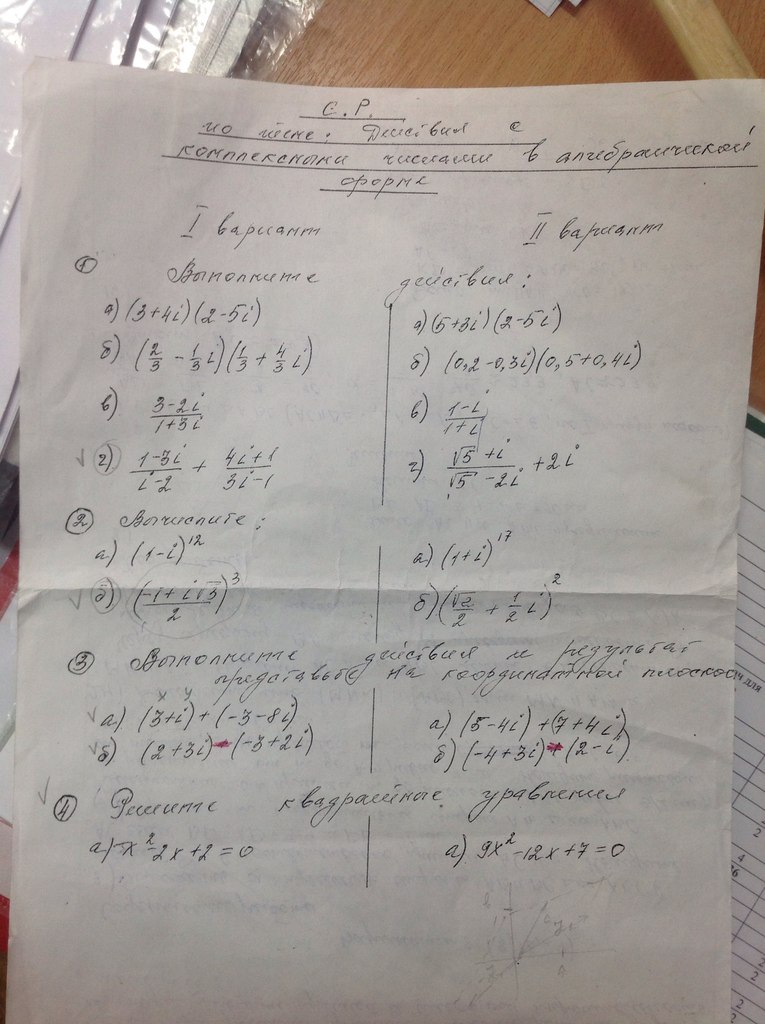 С.Р.
по теме: Действия с
комплексными числами в алгебраической
форме
I вариант II вариант
① Выполните действия:
а) (3+4i)(2-5i) а) (5+3i)(2-5i)
б) (2/3 - 1/3 i)(1/3 + 4/3 i) б) (0,2-0,3i)(0,5+0,4i)
в) (3-2i)/(1+3i) в) (1-i)/(1+i)
✓ г) (1-3i)/(i-2) + (4i+1)/(3i-1) г) (√5+i)/(√5-2i) + 2i
② Вычислите:
а) (1-i)^12 а) (1+i)^17
✓ б) ((-1+i√3)/2)^3 б) (√2/2 + 1/2 i)^2
③ Выполните действия и результат
представьте на координатной плоскос
x y
✓ а) (3+i)+(-3-8i) а) (5-4i)+(7+4i)
✓ б) (2+3i)-(-3+2i) б) (-4+3i)+(2-i)
✓ ④ Решите квадратные уравнения
а) x²-2x+2=0 а) 9x²-12x+7=0
для